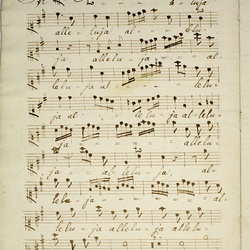 al - - - luja
alle - luja al - - lelu -
ja allelu - ja al -
lelu - ja al - - lelu -
- - - lelu - ja al-lelu -
ja - - - - allelu -
ja - al - leluja, al -
lelu - ja - - - al -
lelu - ja allelu - ja al -
lelu - ja.